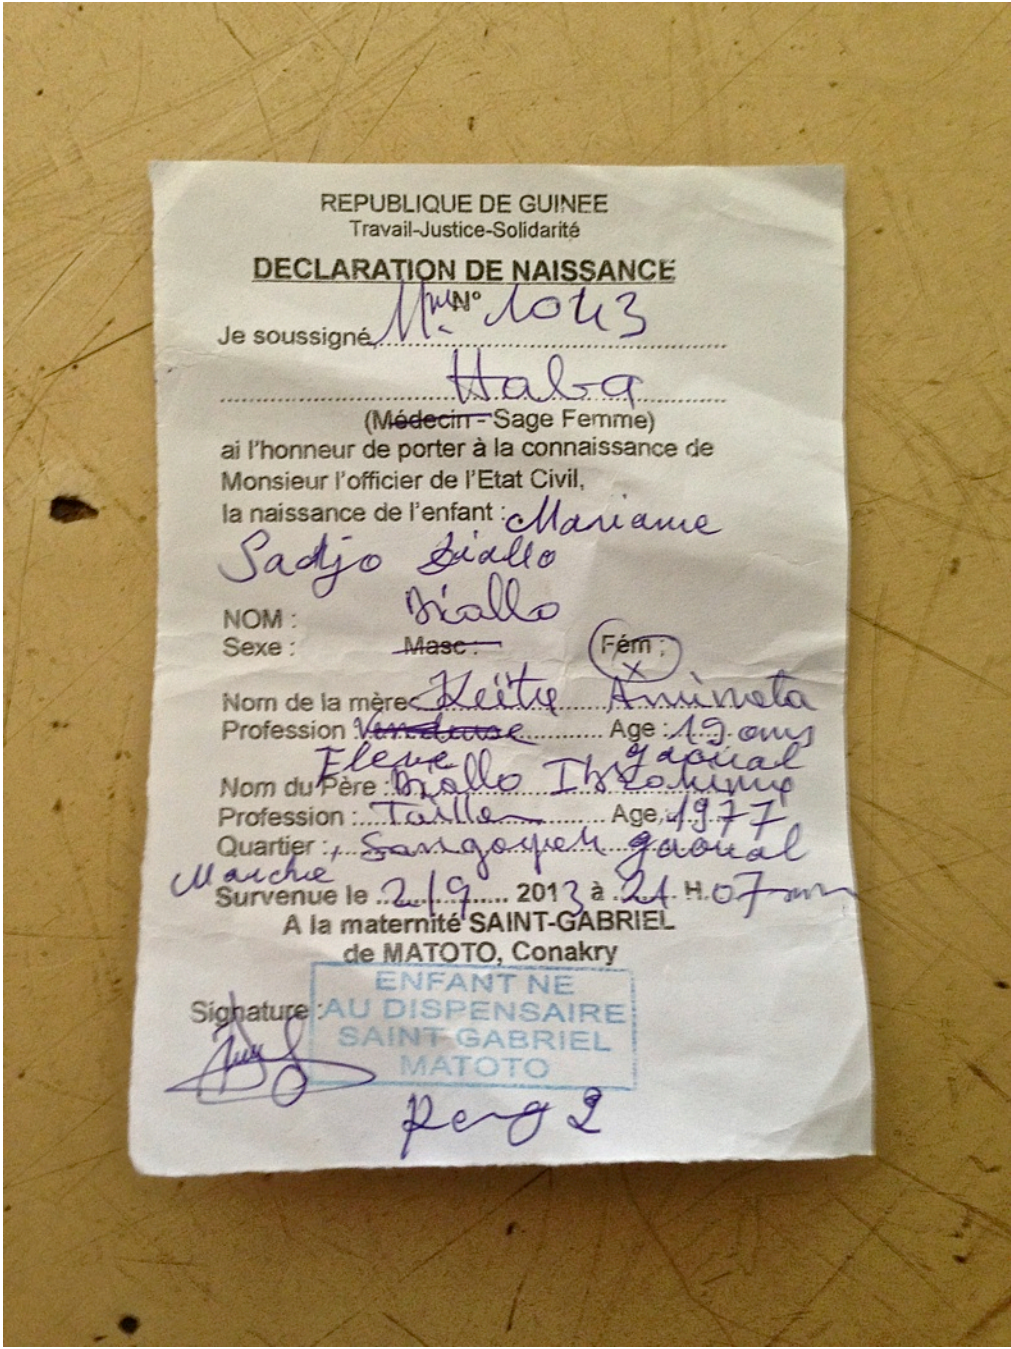 REPUBLIQUE DE GUINEE
Travail-Justice-Solidarité
DECLARATION DE NAISSANCE
N° 1043
Je soussigné Mme
Haba
(Médecin - Sage Femme)
ai l'honneur de porter à la connaissance de
Monsieur l'officier de l'Etat Civil,
la naissance de l'enfant : Mariame
Sadjo Diallo
NOM : Diallo
Sexe : Masc : Fém : x
Nom de la mère Keïta Aminata
Profession : Vendeuse Age : 19 ans
Eleve Gaoual
Nom du Père : Diallo Ibrahima
Profession : Tailleur Age 1977
Quartier : Sangoyah Gaoual
Marche
Survenue le 2/9 2013 à 21 H 07 mn
A la maternité SAINT-GABRIEL
de MATOTO, Conakry
Signature :
ENFANT NE
AU DISPENSAIRE
SAINT GABRIEL
MATOTO
Rang 2